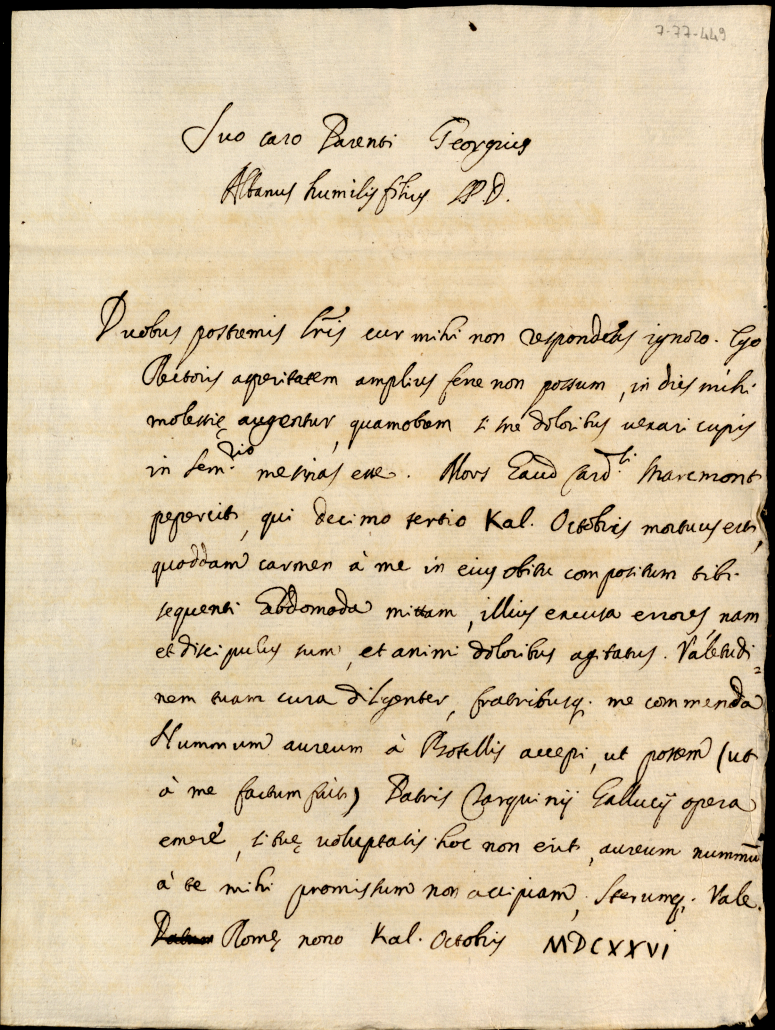 7-77-449
Suo caro Parenti Georgius
Albanus humilis filius S.P.D.
Duobus postremis lr̃is cur mihi non respondetis ignoro. Ego
Rectoris asperitatem amplius ferre non possum, in dies mihi
molestię augentur, quamobrem si me doloribus uexari cupis
in Sem.rio me sinas esse. Mors Card.li Maremont
pepercit, qui decimo tertio Kal. Octobris mortuus est,
quoddam carmen à me in eius obitu compositum tibi
sequenti Ebdomada mittam, illius excusa errores nam
et discipulus sum, et animi doloribus agitatus. Valetudi=
nem tuam cura diligenter, fratribusq. me commenda
Nummum aureum à Rotellis accepi, ut possem (ut
à me factum fuit) Patris Tarquinij Gallucij opera
emere, si tuę uoluptatis hoc non erit, aureum nummũ
à te mihi promissum non accipiam. Iterumq. Vale.
Datum Romę nono Kal. Octobris MDCXXVI